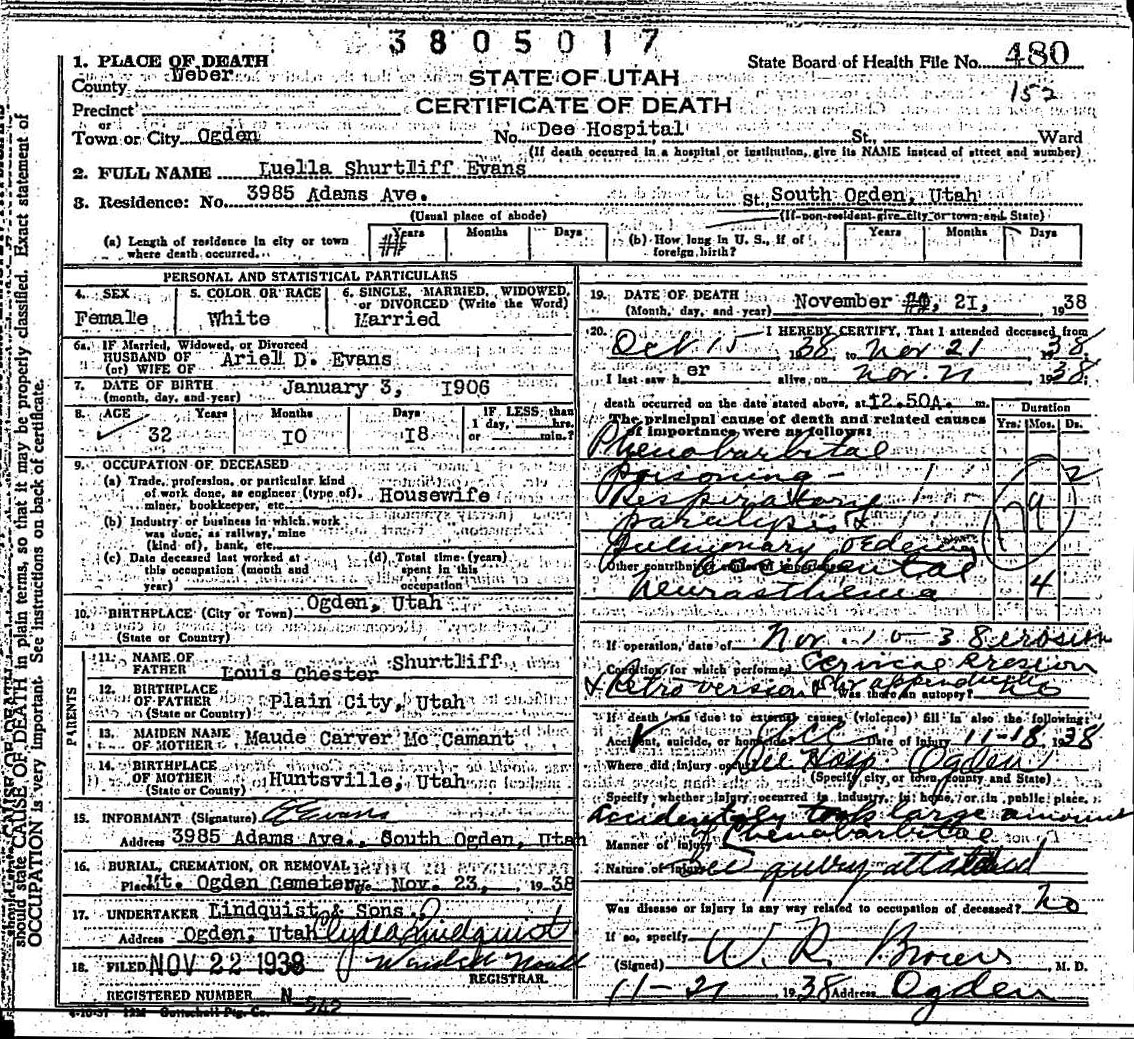 3805017
1. PLACE OF DEATH
State Board of Health File No. 480
County Weber
STATE OF UTAH
152
Precinct
CERTIFICATE OF DEATH
or
Town or City Ogden No. Dee Hospital St., Ward
(If death occurred in a hospital or institution, give its NAME instead of street and number)
2. FULL NAME Luella Shurtliff Evans
3. Residence: No. 3985 Adams Ave. St., South Ogden, Utah
(Usual place of abode) (If non-resident give city or town and State)
(a) Length of residence in city or town where death occurred. Years Months Days
(b) How long in U. S., if of foreign birth? Years Months Days
PERSONAL AND STATISTICAL PARTICULARS
4. SEX Female
5. COLOR OR RACE White
6. SINGLE, MARRIED, WIDOWED, or DIVORCED (Write the Word) Married
6a. IF Married, Widowed, or Divorced
HUSBAND OF
(or) WIFE OF Ariell D. Evans
7. DATE OF BIRTH
(month, day, and year) January 3, 1906
8. AGE Years 32 Months 10 Days 18 IF LESS than 1 day, hrs. or min.?
9. OCCUPATION OF DECEASED
(a) Trade, profession, or particular kind of work done, as engineer (type of), miner, bookkeeper, etc. Housewife
(b) Industry or business in which work was done, as railway, mine (kind of), bank, etc.
(c) Date deceased last worked at this occupation (month and year)
(d) Total time (years) spent in this occupation
10. BIRTHPLACE (City or Town) Ogden, Utah
(State or Country)
PARENTS
11. NAME OF FATHER Louis Chester Shurtliff
12. BIRTHPLACE OF FATHER Plain City, Utah
(State or Country)
13. MAIDEN NAME OF MOTHER Maude Carver Mc Camant
14. BIRTHPLACE OF MOTHER Huntsville, Utah
(State or Country)
15. INFORMANT (Signature) Evans
Address 3985 Adams Ave., South Ogden, Utah
16. BURIAL, CREMATION, OR REMOVAL
Place Mt. Ogden Cemetery Nov. 23, 1938
17. UNDERTAKER Lindquist & Sons
Address Ogden, Utah Clyde Lindquist
18. FILED NOV 22 1938
REGISTRAR.
REGISTERED NUMBER N 542
19. DATE OF DEATH
(Month, day, and year) November 21, 1938
20. I HEREBY CERTIFY, That I attended deceased from
Oct 15 1938 to Nov 21 1938
I last saw her alive on Nov. 21 1938
death occurred on the date stated above, at 12.50A. m.
The principal cause of death and related causes of importance were as follows:
Duration
Yrs. Mos. Ds.
Phenobarbital
poisoning - 2
Respiratory
paralysis &
Pulmonary Oedema
accidental
Neurasthenia 4
If operation, date of Nov. 10 38 erosion
Condition for which performed Cervical Erosion
& Retroversion appendicitis Was there an autopsy? no
If death was due to external causes (violence) fill in also the following:
Accident, suicide, or homicide? Acc Date of injury 11-18 1938
Where did injury occur? Dee Hosp Ogden
(Specify city or town, county and State)
Specify whether injury occurred in industry, in home, or in public place.
Accidentally took large amount
of Phenobarbital
Manner of injury
Nature of injury See query attached
Was disease or injury in any way related to occupation of deceased? no
If so, specify
(Signed) W. R. M. D.
11-21 1938 Address Ogden
should state CAUSE OF DEATH in plain terms, so that it may be properly classified. Exact statement of
OCCUPATION is very important. See instructions on back of certificate.